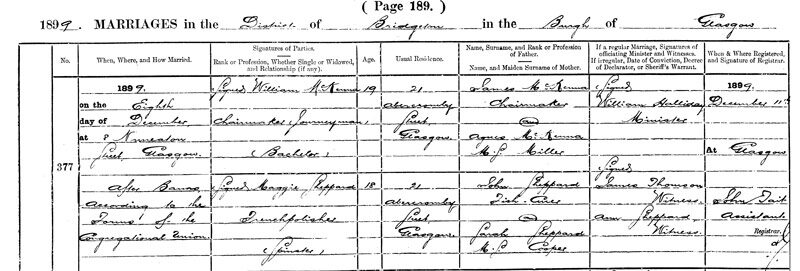 ( Page 189. )
1899. MARRIAGES in the District of Bridgeton in the Burgh of Glasgow
No.
When, Where, and How Married.
Signatures of Parties.
Rank or Profession, Whether Single or Widowed, and Relationship (if any).
Age.
Usual Residence.
Name, Surname, and Rank or Profession of Father.
Name, and Maiden Surname of Mother.
If a regular Marriage, Signatures of officiating Minister and Witnesses.
If irregular, Date of Conviction, Decree of Declarator, or Sheriff's Warrant.
When & Where Registered, and Signature of Registrar.
377
1899.
on the Eighth
day of December
at 8 Nuneaton
Street, Glasgow
After Banns
according to the
Forms of the
Congregational Union.
Signed William McKenna
Chairmaker (Journeyman)
(Bachelor)
Signed Maggie Sheppard
Frenchpolisher
(Spinster)
19
18
21
Abercromby
Street
Glasgow
21
Abercromby
Street
Glasgow
James McKenna
Chairmaker
Agnes McKenna
M.S. Miller
John Sheppard
Sarah Sheppard
M.S. Cooper
Signed
William Halliday
Minister
Signed
James Thomson
Witness.
Ann Sheppard
Witness.
1899.
December 11th
At Glasgow
John Tait
Assistant
Registrar.